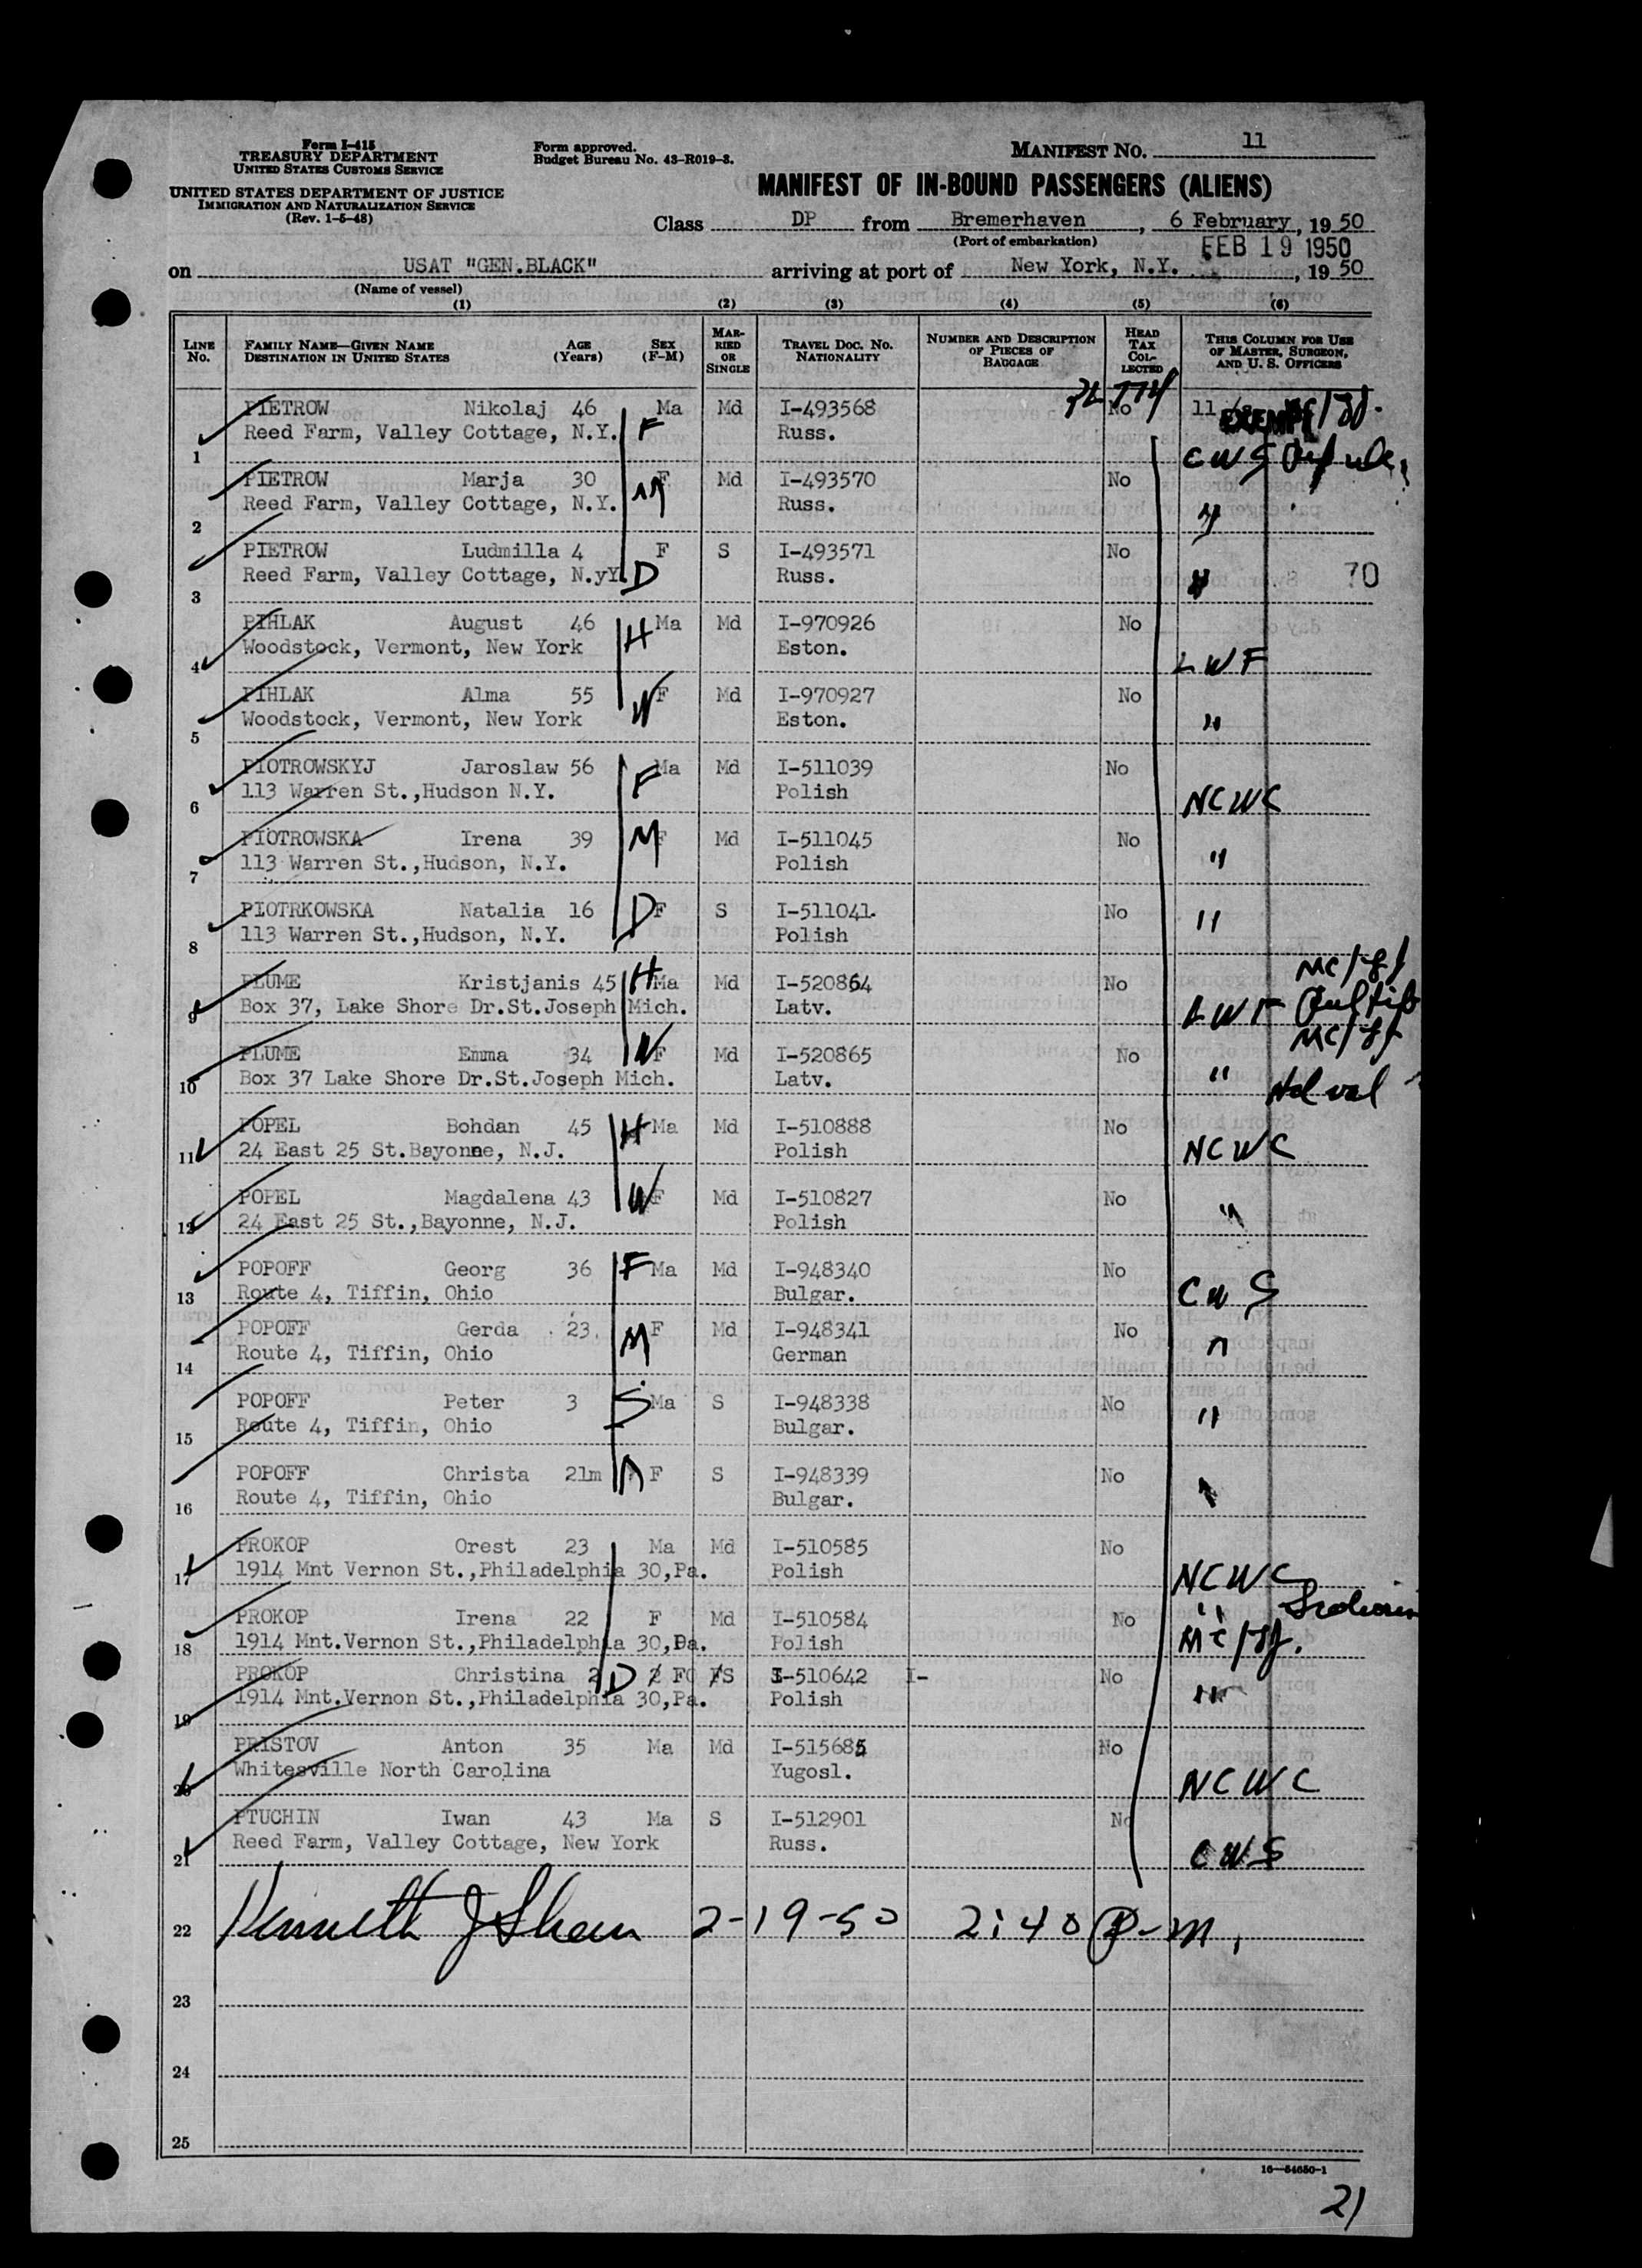 Form I-415
TREASURY DEPARTMENT
UNITED STATES CUSTOMS SERVICE
UNITED STATES DEPARTMENT OF JUSTICE
IMMIGRATION AND NATURALIZATION SERVICE
(Rev. 1-5-48)
Form approved.
Budget Bureau No. 43-R019-3.
MANIFEST NO. 11
MANIFEST OF IN-BOUND PASSENGERS (ALIENS)
Class DP from Bremerhaven, 6 February, 1950
(Port of embarkation)
FEB 19 1950
on USAT "GEN.BLACK" arriving at port of New York, N.Y. , 1950
(Name of vessel)
(1) (2) (3) (4) (5) (6)
LINE No. FAMILY NAME—GIVEN NAME DESTINATION IN UNITED STATES AGE (Years) SEX (F-M) MARRIED OR SINGLE TRAVEL DOC. NO. NATIONALITY NUMBER AND DESCRIPTION OF PIECES OF BAGGAGE HEAD TAX COLLECTED THIS COLUMN FOR USE OF MASTER, SURGEON, AND U. S. OFFICERS
PIETROW Nikolaj 46 Ma Md I-493568 No 11
1 Reed Farm, Valley Cottage, N.Y. F Russ. EXEMPT
CWS
PIETROW Marja 30 F Md I-493570 No
2 Reed Farm, Valley Cottage, N.Y. M Russ. "
PIETROW Ludmilla 4 F S I-493571 No
3 Reed Farm, Valley Cottage, N.yY. D Russ. " 70
PIHLAK August 46 H Ma Md I-970926 No
4 Woodstock, Vermont, New York Eston. LWF
PIHLAK Alma 55 W F Md I-970927 No
5 Woodstock, Vermont, New York Eston. "
PIOTROWSKYJ Jaroslaw 56 F Ma Md I-511039 No
6 113 Warren St.,Hudson N.Y. Polish NCWC
PIOTROWSKA Irena 39 M F Md I-511045 No
7 113 Warren St.,Hudson, N.Y. Polish "
PIOTRKOWSKA Natalia 16 D F S I-511041 No
8 113 Warren St.,Hudson, N.Y. Polish "
PLUME Kristjanis 45 H Ma Md I-520864 No
9 Box 37, Lake Shore Dr.St.Joseph Mich. Latv. LWF
PLUME Emma 34 W F Md I-520865 No
10 Box 37 Lake Shore Dr.St.Joseph Mich. Latv. "
POPEL Bohdan 45 H Ma Md I-510888 No
11 24 East 25 St.Bayonne, N.J. Polish NCWC
POPEL Magdalena 43 W F Md I-510827 No
12 24 East 25 St.,Bayonne, N.J. Polish "
POPOFF Georg 36 F Ma Md I-948340 No
13 Route 4, Tiffin, Ohio Bulgar. CWS
POPOFF Gerda 23 M F Md I-948341 No
14 Route 4, Tiffin, Ohio German "
POPOFF Peter 3 S Ma S I-948338 No
15 Route 4, Tiffin, Ohio Bulgar. "
POPOFF Christa 21m F S I-948339 No
16 Route 4, Tiffin, Ohio Bulgar. "
PROKOP Orest 23 Ma Md I-510585 No
17 1914 Mnt Vernon St.,Philadelphia 30,Pa. Polish NCWC
PROKOP Irena 22 F Md I-510584 No "
18 1914 Mnt.Vernon St.,Philadelphia 30,Pa. Polish
PROKOP Christina 2 D F S I-510642 I- No
19 1914 Mnt.Vernon St.,Philadelphia 30,Pa. Polish "
PRISTOV Anton 35 Ma Md I-515685 No
20 Whitesville North Carolina Yugosl. NCWC
PTUCHIN Iwan 43 Ma S I-512901 No
21 Reed Farm, Valley Cottage, New York Russ. CWS
22 Kenneth J 2-19-50 2:40 P-m.
23
24
25
16—54650-1
21